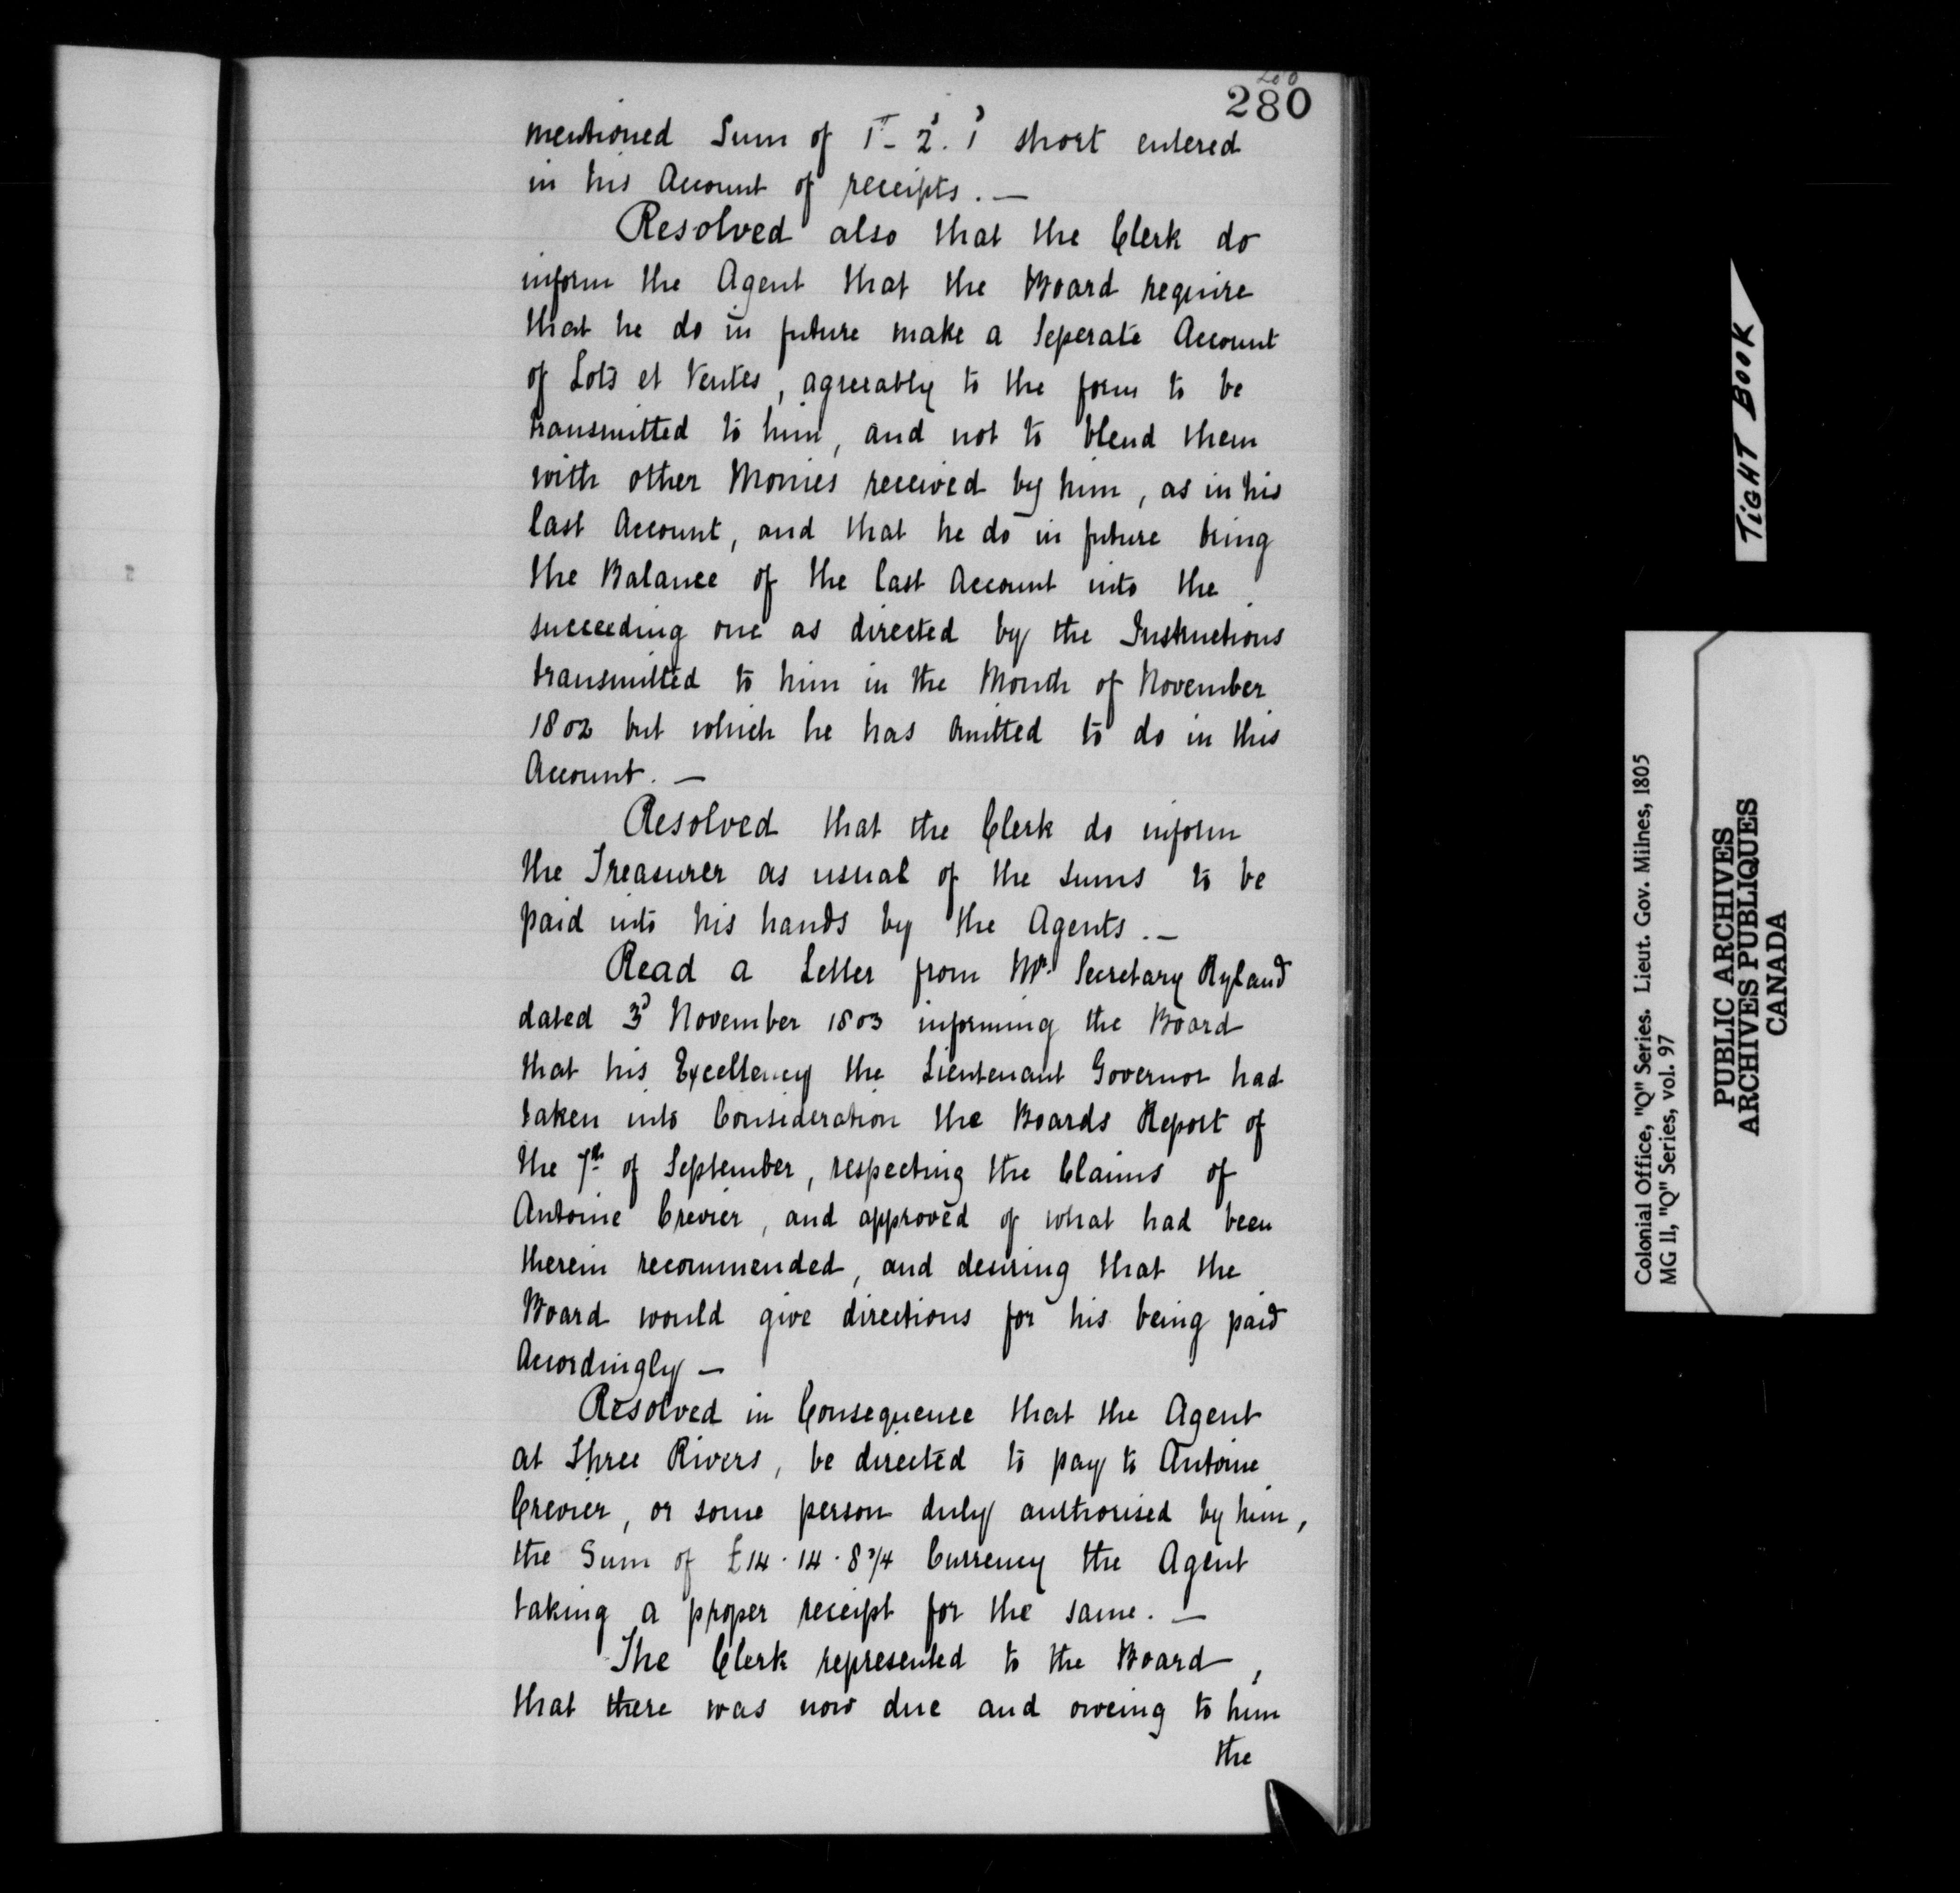 280
mentioned Sum of 1ᵗ- 2ˢ. 1ᵈ short entered
in his Account of receipts. —
Resolved also that the Clerk do
inform the Agent that the Board require
that he do in future make a Seperate Account
of Lots et Ventes, agreeably to the form to be
transmitted to him, and not to blend them
with other Monies received by him, as in his
last Account, and that he do in future bring
the Balance of the last Account into the
succeeding one as directed by the Instructions
transmitted to him in the Month of November
1802 but which he has omitted to do in this
Account. —
Resolved that the Clerk do inform
the Treasurer as usual of the sums to be
paid into his hands by the Agents. —
Read a Letter from Mr. Secretary Ryland
dated 3ᵈ November 1803 informing the Board
that his Excellency the Lieutenant Governor had
taken into Consideration the Boards Report of
the 7th of September, respecting the Claims of
Antoine Crevier, and approved of what had been
therein recommended, and desiring that the
Board would give directions for his being paid
Accordingly —
Resolved in Consequence that the Agent
at Three Rivers, be directed to pay to Antoine
Crevier, or some person duly authorised by him,
the Sum of £14 . 14 . 8 3/4 Currency the Agent
taking a proper receipt for the same. —
The Clerk represented to the Board,
that there was now due and oweing to him
the
TIGHT BOOK
Colonial Office, "Q" Series. Lieut. Gov. Milnes, 1805
MG 11, "Q" Series, vol. 97
PUBLIC ARCHIVES
ARCHIVES PUBLIQUES
CANADA